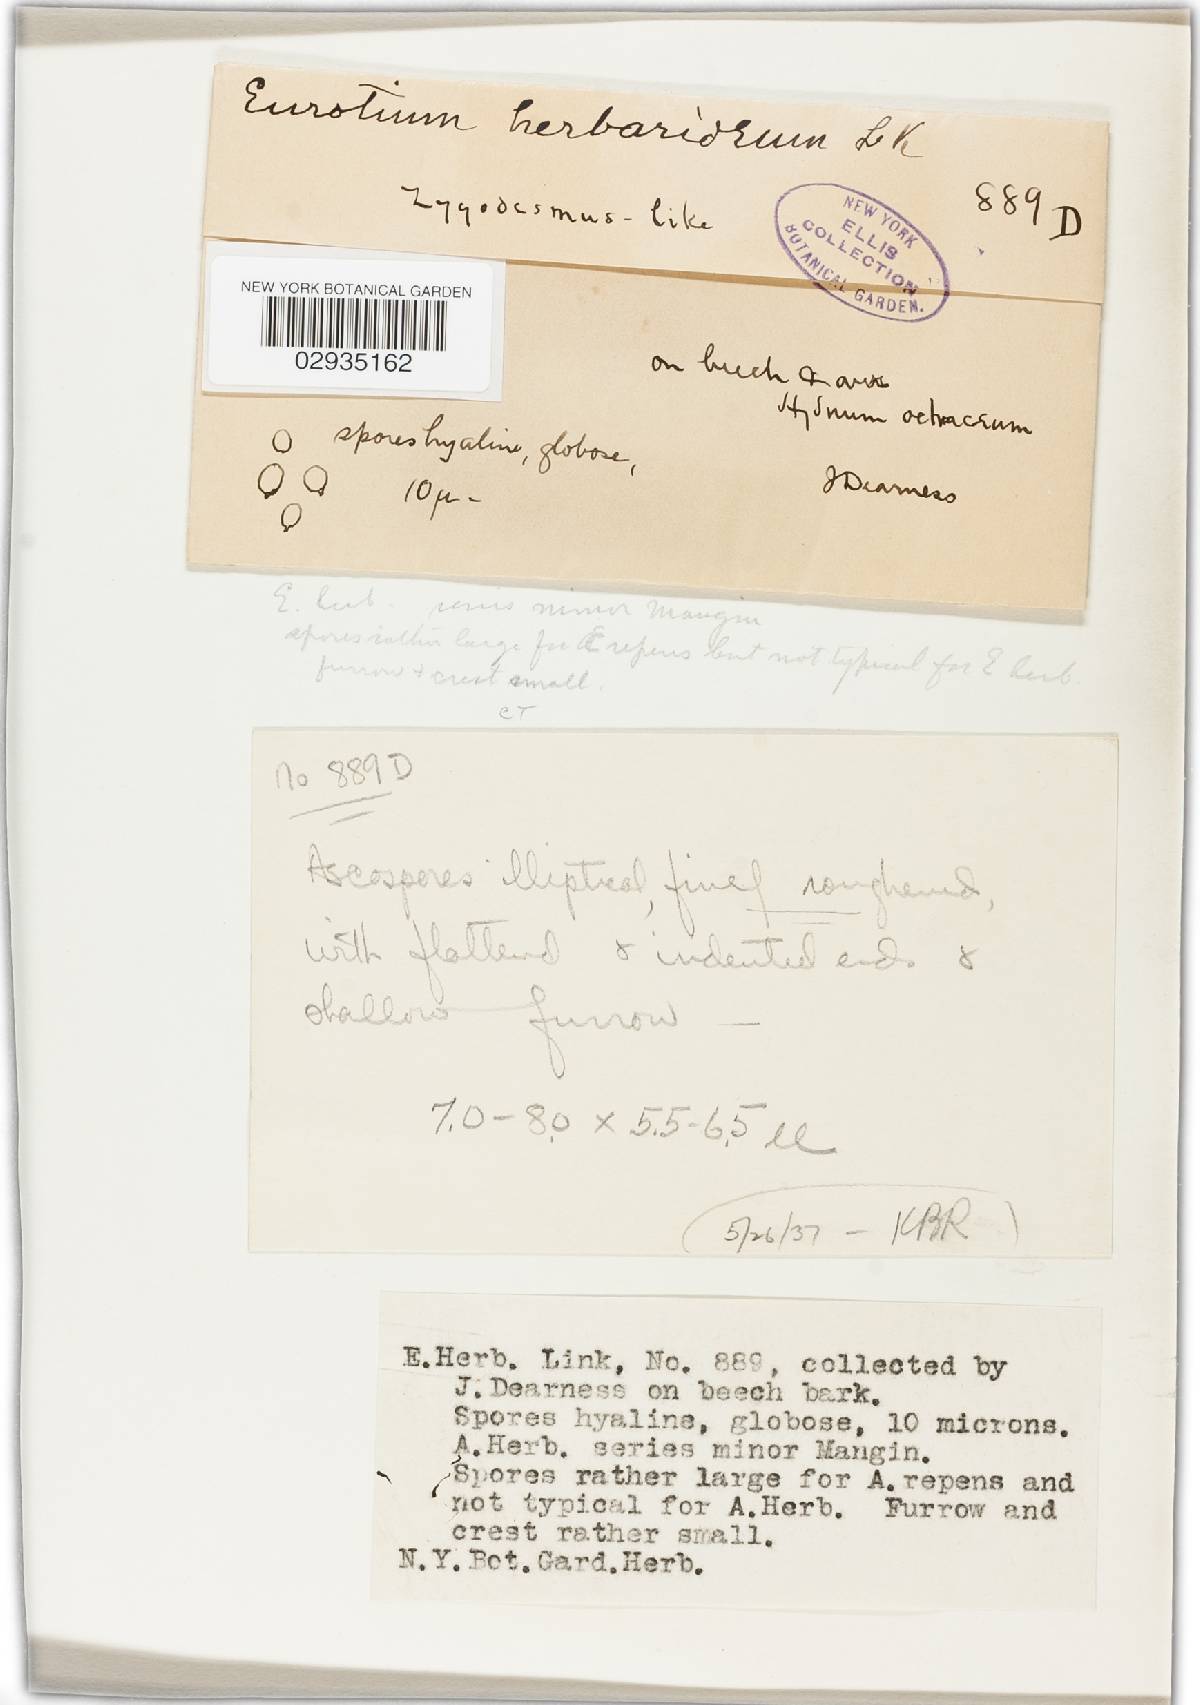 Eurotium herbariorum LK
Zygodesmus-like
889 D
NEW YORK
ELLIS
COLLECTION
BOTANICAL GARDEN.
NEW YORK BOTANICAL GARDEN
02935162
on beech &
Hydnum ochraceum
spores hyaline, globose,
10 μ-
JDearness
E. herb. series minor Mangin
spores rather large for E repens but not typical for E herb.
furrow + crest small.
CT
No 889 D
Ascospores elliptical, finely roughened,
with flattend & indented ends &
shallow furrow —
7.0-8.0 x 5.5-6.5 u
(5/26/37 - KBR)
E.Herb. Link, No. 889, collected by
J.Dearness on beech bark.
Spores hyaline, globose, 10 microns.
A.Herb. series minor Mangin.
Spores rather large for A.repens and
not typical for A.Herb. Furrow and
crest rather small.
N.Y.Bot.Gard.Herb.